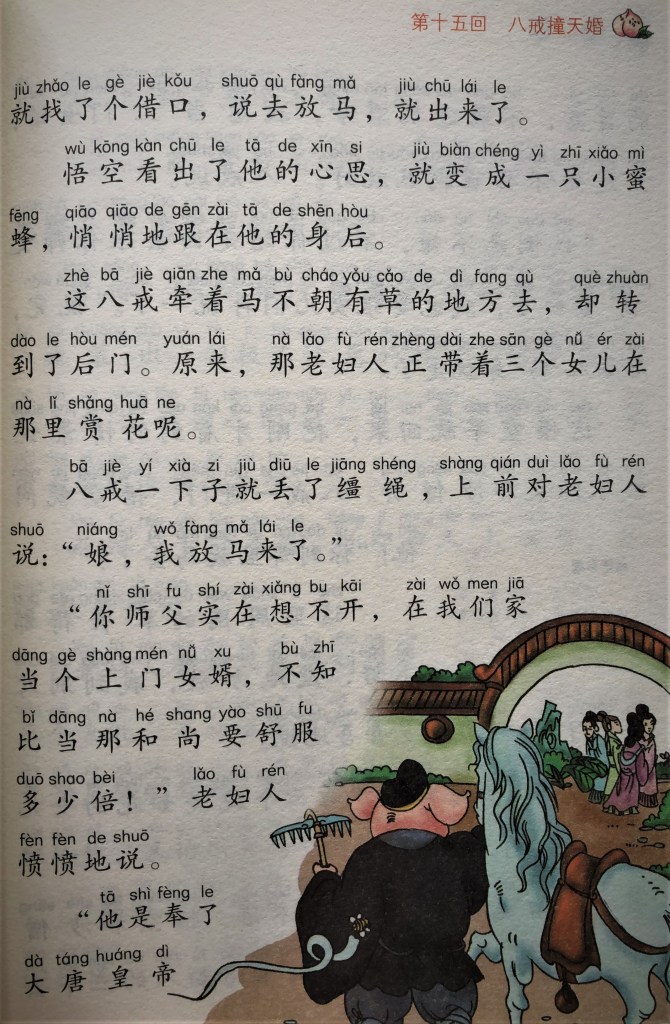 第十五回 八戒撞天婚
jiù zhǎo le gè jiè kǒu shuō qù fàng mǎ jiù chū lái le
就找了个借口，说去放马，就出来了。
wù kōng kàn chū le tā de xīn si jiù biàn chéng yì zhī xiǎo mì
悟空看出了他的心思，就变成一只小蜜
fēng qiāo qiāo de gēn zài tā de shēn hòu
蜂，悄悄地跟在他的身后。
zhè bā jiè qiān zhe mǎ bù cháo yǒu cǎo de dì fang qù què zhuàn
这八戒牵着马不朝有草的地方去，却转
dào le hòu mén yuán lái nà lǎo fù rén zhèng dài zhe sān gè nǚ ér zài
到了后门。原来，那老妇人正带着三个女儿在
nà lǐ shǎng huā ne
那里赏花呢。
bā jiè yí xià zi jiù diū le jiāng shéng shàng qián duì lǎo fù rén
八戒一下子就丢了缰绳，上前对老妇人
shuō niáng wǒ fàng mǎ lái le
说：“娘，我放马来了。”
nǐ shī fu shí zài xiǎng bu kāi zài wǒ men jiā
“你师父实在想不开，在我们家
dāng gè shàng mén nǚ xu bù zhī
当个上门女婿，不知
bǐ dāng nà hé shang yào shū fu
比当那和尚要舒服
duō shao bèi lǎo fù rén
多少倍！”老妇人
fèn fèn de shuō
愤愤地说。
tā shì fèng le
“他是奉了
dà táng huáng dì
大唐皇帝